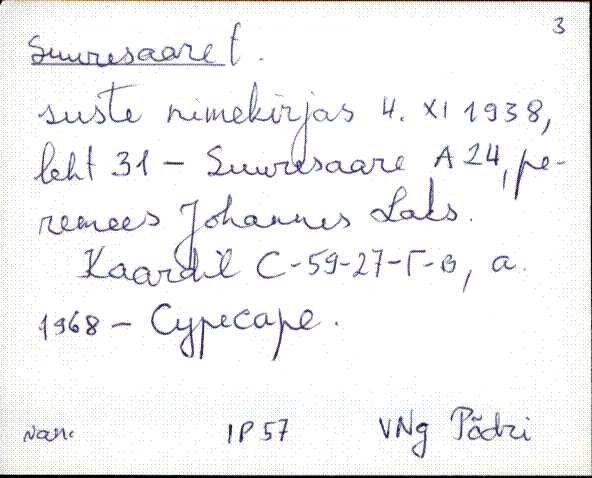 3
Suuresaare t.
suste nimekirjas 4. XI 1938,
leht 31 - Suuresaare A 24, pe-
remees Johannes Laks.
Kaardil C-59-27-Г-в, a.
1968 - Суресаре.
Nan. IP 57 VNg Pädri